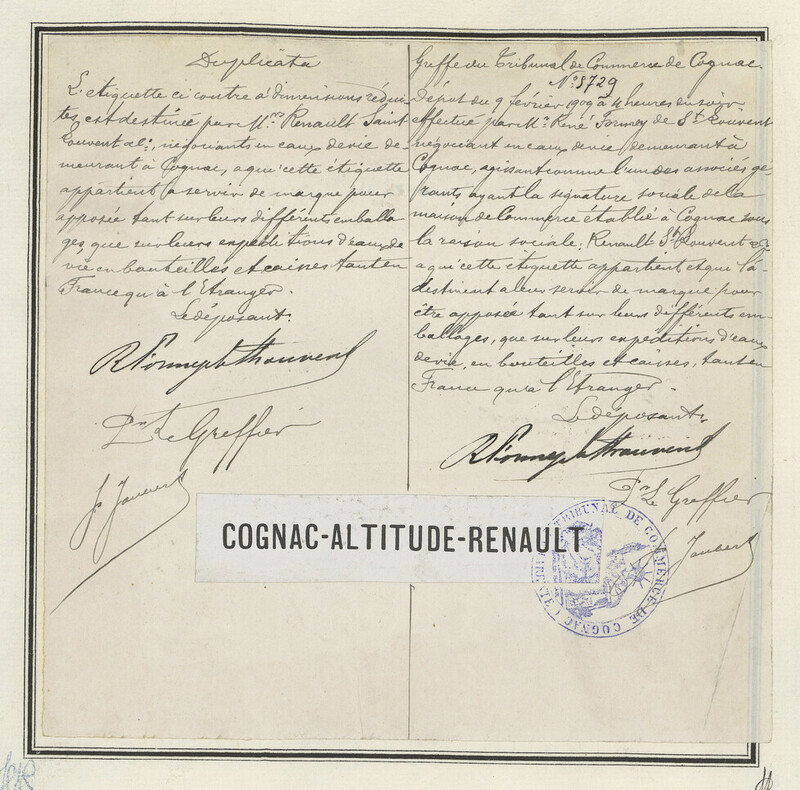 Duplicata
L'etiquette ci contre à dimensions rédui-
tes, est destinée par Mrs Renault Saint
Louvent al:, négociants en eaux de vie de-
meurant à Cognac, a qui cette étiquette
appartient a servir de marque pour
apposée tant sur leurs différents emballa-
ges, que sur leurs expeditions d'eaux de
vie en bouteilles et caisses tant en
France qu'à l'Etranger.
Le déposant:
Pr Le Greffier
Greffe du Tribunal de Commerce de Cognac.
No: 3729
Dépôt du 9 février 1909 à 4 heures du soir
effectué par Mr. René de St. Louvent
négociant en eaux de vie, demeurant à
Cognac, agissant comme l'un des associés gé-
rants ayant la signature sociale de la
maison de Commerce établie à Cognac sous
la raison sociale: Renault St. Louvent & Co
a qui cette etiquette appartient et qui la
destinent a leur servir de marque pour
être apposée tant sur leurs différents em-
ballages, que sur leurs expéditions d'eaux
de vie, en bouteilles et caisses, tant en
France qu'a l'Etranger.
Le déposant:
Pr Le Greffier
COGNAC-ALTITUDE-RENAULT
TRIBUNAL DE COMMERCE DE COGNAC